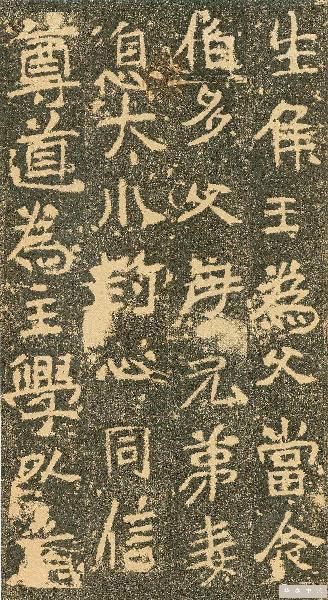 生侯王為父當令
伯多父母兄弟妻
息大小心同信
尊道為主學